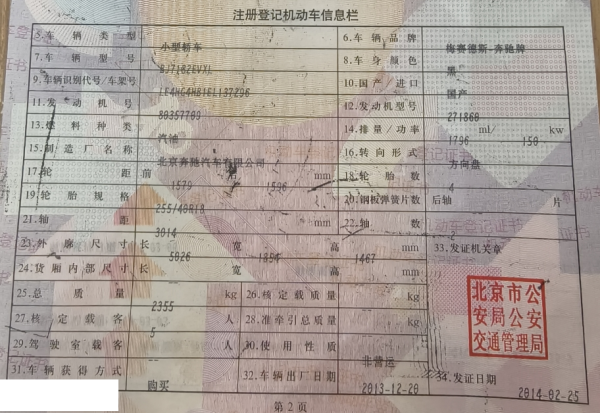 注册登记机动车信息栏
5.车辆类型 小型轿车 6.车辆品牌 梅赛德斯-奔驰牌
7.车辆型号 BJ7182EVXL 8.车身颜色 黑
9.车辆识别代号/车架号 LE4HG4HB1EL137296 10.国产/进口 国产
11.发动机号 80357789 12.发动机型号 271860
13.燃料种类 汽油 14.排量/功率 1796 ml/ 150 kw
15.制造厂名称 北京奔驰汽车有限公司 16.转向形式 方向盘
17.轮距 前 1579 后 1596 mm 18.轮胎数 4
19.轮胎规格 255/40R18 20.钢板弹簧片数 后轴 片
21.轴距 3014 22.轴数 2
23.外廓尺寸 长 5026 宽 1854 高 1467 mm 33.发证机关章
24.货厢内部尺寸 长 宽 高 mm
25.总质量 2355 kg 26.核定载质量 kg
27.核定载客 5 人 28.准牵引总质量 kg
29.驾驶室载客 人 30.使用性质 非营运
31.车辆获得方式 购买 32.车辆出厂日期 2013-12-20 34.发证日期 2014-02-25
北京市公
安局公安
交通管理局
第2页